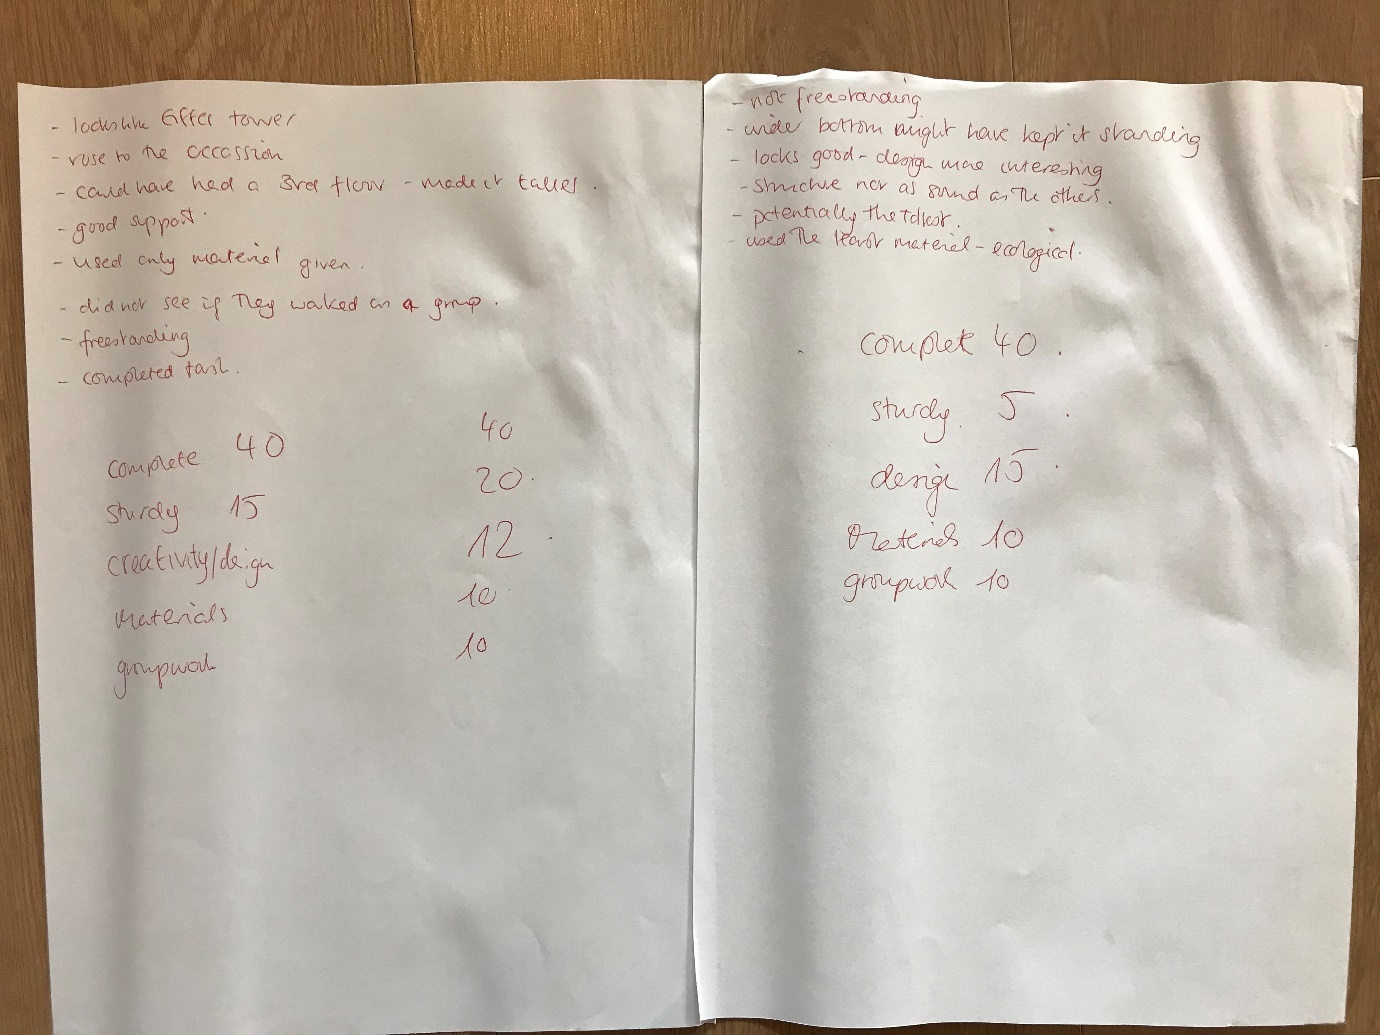 - looks like Eiffel tower
- rose to the occassion
- could have had a 3rd floor - made it taller.
- good support.
- used only material given.
- did not see if they worked as a group.
- freestanding
- completed task.
complete 40 40
sturdy 15 20.
creativity/design 12
materials 10
groupwork 10
- not freestanding
- wider bottom might have kept it standing
- looks good - design more interesting
- structure not as sound as the others.
- potentially the tallest.
- used the least material - ecological.
complete 40.
sturdy. 5
design 15
Materials 10
groupwork 10